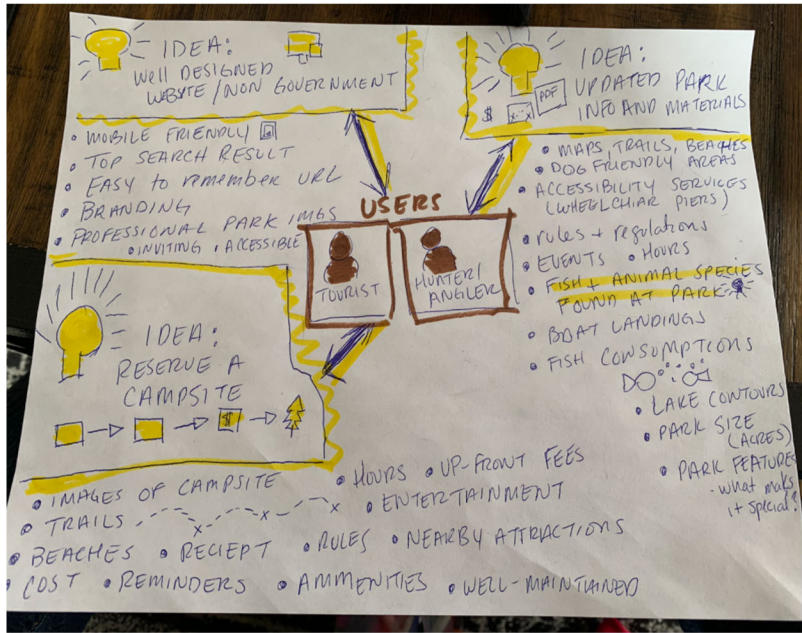 IDEA:
WELL DESIGNED
WEBSYTE/NON GOVERNMENT
• MOBILE FRIENDLY
• TOP SEARCH RESULT
• EASY TO REMEMBER URL
• BRANDING
• PROFESSIONAL PARK IMGS
• INVITING • ACCESSIBLE
IDEA:
UPDATED PARK
INFO AND MATERIALS
$
PDF
• MAPS, TRAILS, BEACHES
• DOG FRIENDLY AREAS
• ACCESSIBILITY SERVICES
(WHEELCHIAR PIERS)
• rules + regulations
• EVENTS • HOURS
• FISH + ANIMAL SPECIES
FOUND AT PARK
• BOAT LANDINGS
• FISH CONSUMPTIONS
• LAKE CONTOURS
• PARK SIZE
(ACRES)
• PARK FEATURES
- what maks
it special?
USERS
TOURIST
HUNTER/
ANGLER
IDEA:
RESERVE A
CAMPSITE
$
• IMAGES OF CAMPSITE
• HOURS • UP-FRONT FEES
• TRAILS
• ENTERTAINMENT
• BEACHES • RECIEPT • RULES • NEARBY ATTRACTIONS
• COST • REMINDERS • AMMENITIES • WELL-MAINTAINED